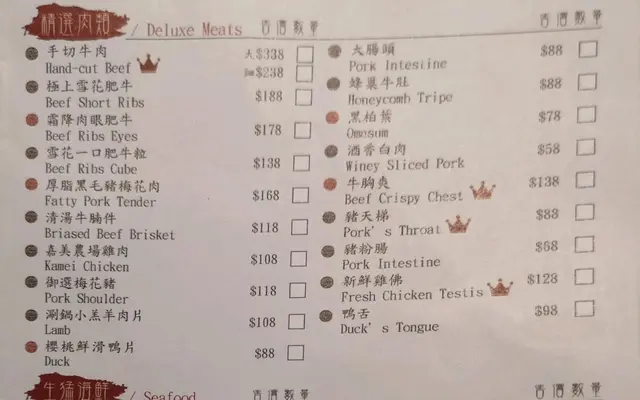 精選肉類 / Deluxe Meats 售價數量
手切牛肉 大$338
Hand-cut Beef $238
極上雪花肥牛
Beef Short Ribs $188
霜降肉眼肥牛
Beef Ribs Eyes $178
雪花一口肥牛粒
Beef Ribs Cube $138
厚脂黑毛豬梅花肉
Fatty Pork Tender $168
清湯牛腩件
Briased Beef Brisket $118
嘉美農場雞肉
Kamei Chicken $108
御選梅花豬
Pork Shoulder $118
涮鍋小羔羊肉片
Lamb $108
櫻桃鮮滑鴨片
Duck $88
售價數量
大腸頭
Pork Intestine $88
蜂巢牛肚
Honeycomb Tripe $88
黑柏葉
Omasum $78
酒香白肉
Winey Sliced Pork $58
牛胸爽
Beef Crispy Chest $138
豬天梯
Pork's Throat $88
豬粉腸
Pork Intestine $68
新鮮雞佛
Fresh Chicken Testis $128
鴨舌
Duck's Tongue $98
生猛海鮮 / Seafood 售價數量
售價數量